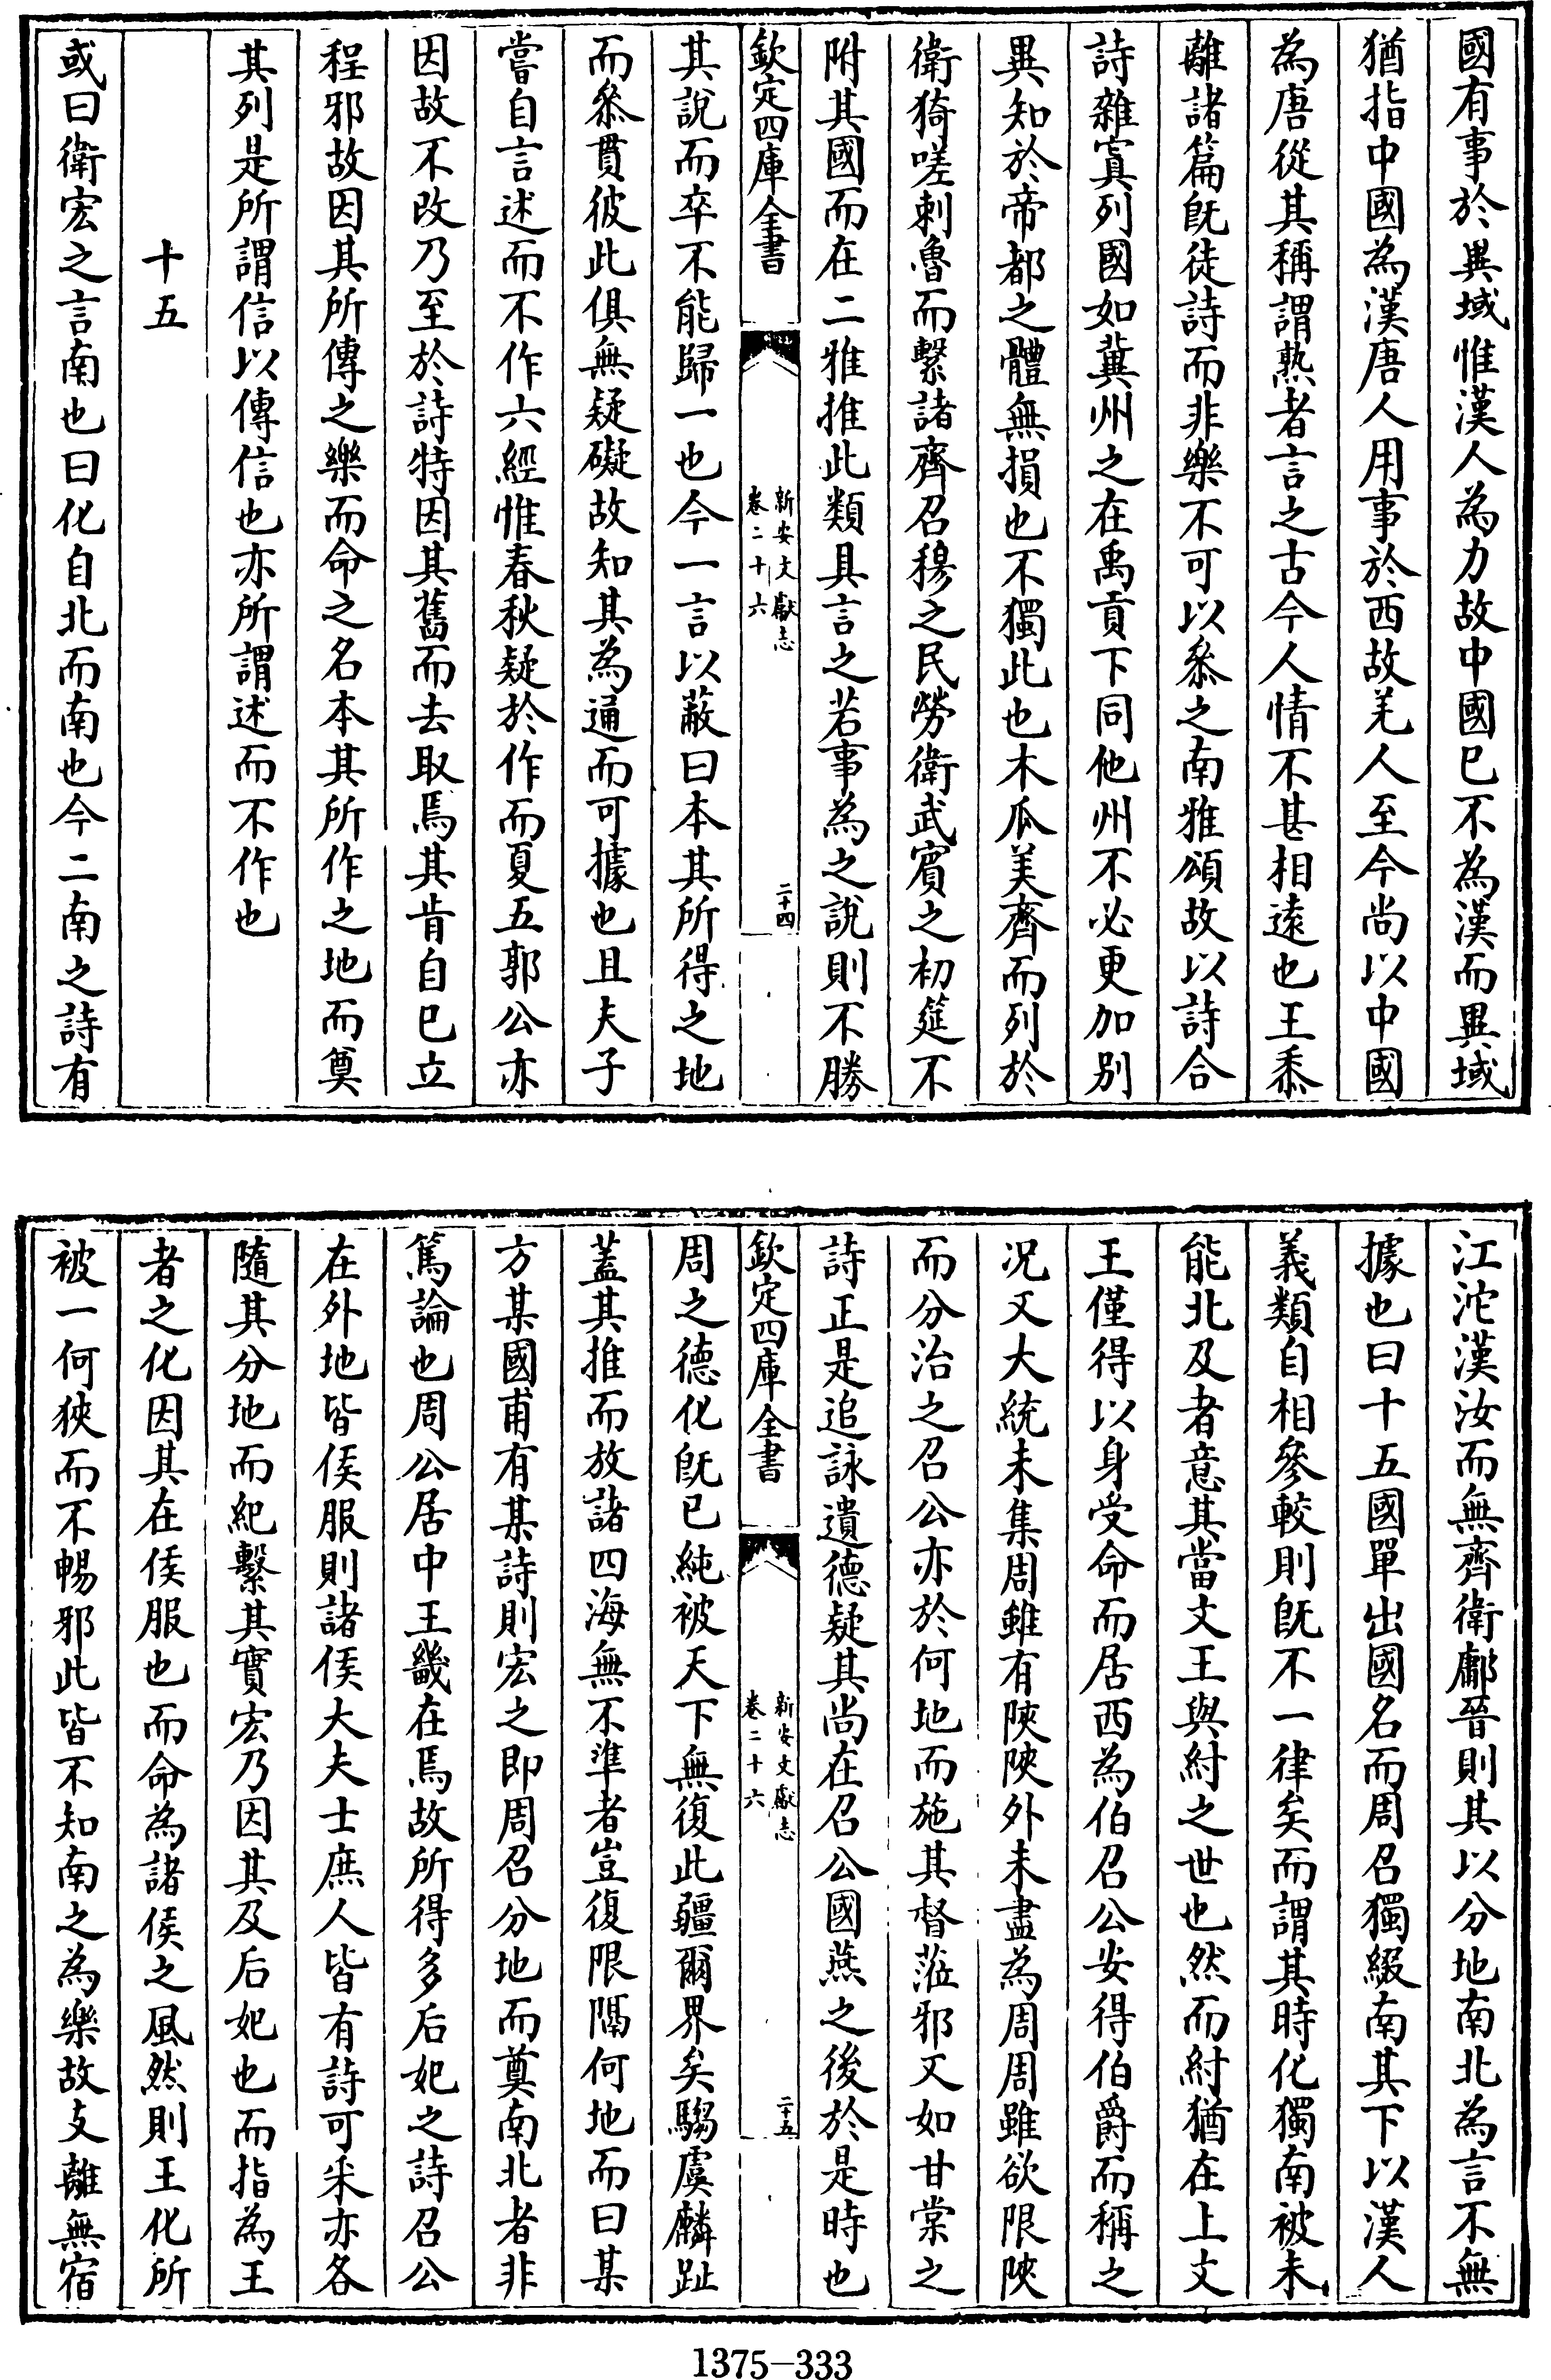 國有事於異域惟漢人為力故中國已不為漢而異域
猶指中國為漢唐人用事於西故羌人至今尚以中國
為唐從其稱謂熟者言之古今人情不甚相遠也王黍
離諸篇旣徒詩而非樂不可以叅之南雅頌故以詩合
詩雜寘列國如冀州之在禹貢下同他州不必更加别
異知於帝都之體無損也不獨此也木瓜美齊而列於
衛猗嗟刺魯而繫諸齊召穆之民勞衛武賓之初筵不
附其國而在二雅推此類具言之若事為之說則不勝
欽定四庫全書
新安文獻志
卷二十六
二十四
其說而卒不能歸一也今一言以蔽曰本其所得之地
而叅貫彼此俱無疑礙故知其為通而可據也且夫子
嘗自言述而不作六經惟春秋疑於作而夏五郭公亦
因故不改乃至於詩特因其舊而去取焉其肯自已立
程邪故因其所傳之樂而命之名本其所作之地而奠
其列是所謂信以傳信也亦所謂述而不作也
十五
或曰衛宏之言南也曰化自北而南也今二南之詩有
江沱漢汝而無齊衛鄘晉則其以分地南北為言不無
據也曰十五國單出國名而周召獨綴南其下以漢人
義類自相參較則旣不一律矣而謂其時化獨南被未
能北及者意其當文王與紂之世也然而紂猶在上文
王僅得以身受命而居西為伯召公安得伯爵而稱之
况又大統未集周雖有陜陜外未盡為周周雖欲限陜
而分治之召公亦於何地而施其督涖邪又如甘棠之
詩正是追詠遺德疑其尚在召公國燕之後於是時也
欽定四庫全書
新安文獻志
卷二十六
二十五
周之德化旣已純被天下無復此疆爾界矣騶虞麟趾
蓋其推而放諸四海無不準者豈復限隔何地而曰某
方某國甫有某詩則宏之即周召分地而奠南北者非
篤論也周公居中王畿在焉故所得多后妃之詩召公
在外地皆侯服則諸侯大夫士庶人皆有詩可采亦各
隨其分地而紀繫其實宏乃因其及后妃也而指為王
者之化因其在侯服也而命為諸侯之風然則王化所
被一何狹而不暢邪此皆不知南之為樂故支離無宿
1375-333